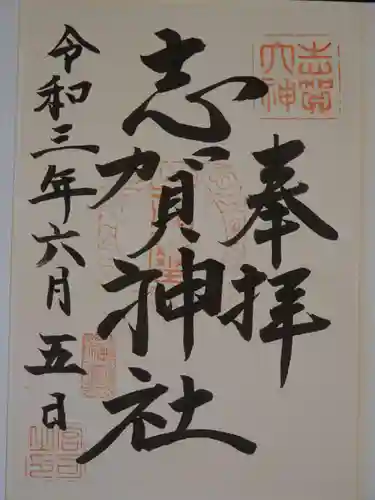 奉拝
志賀神社
令和三年六月五日
志賀大神